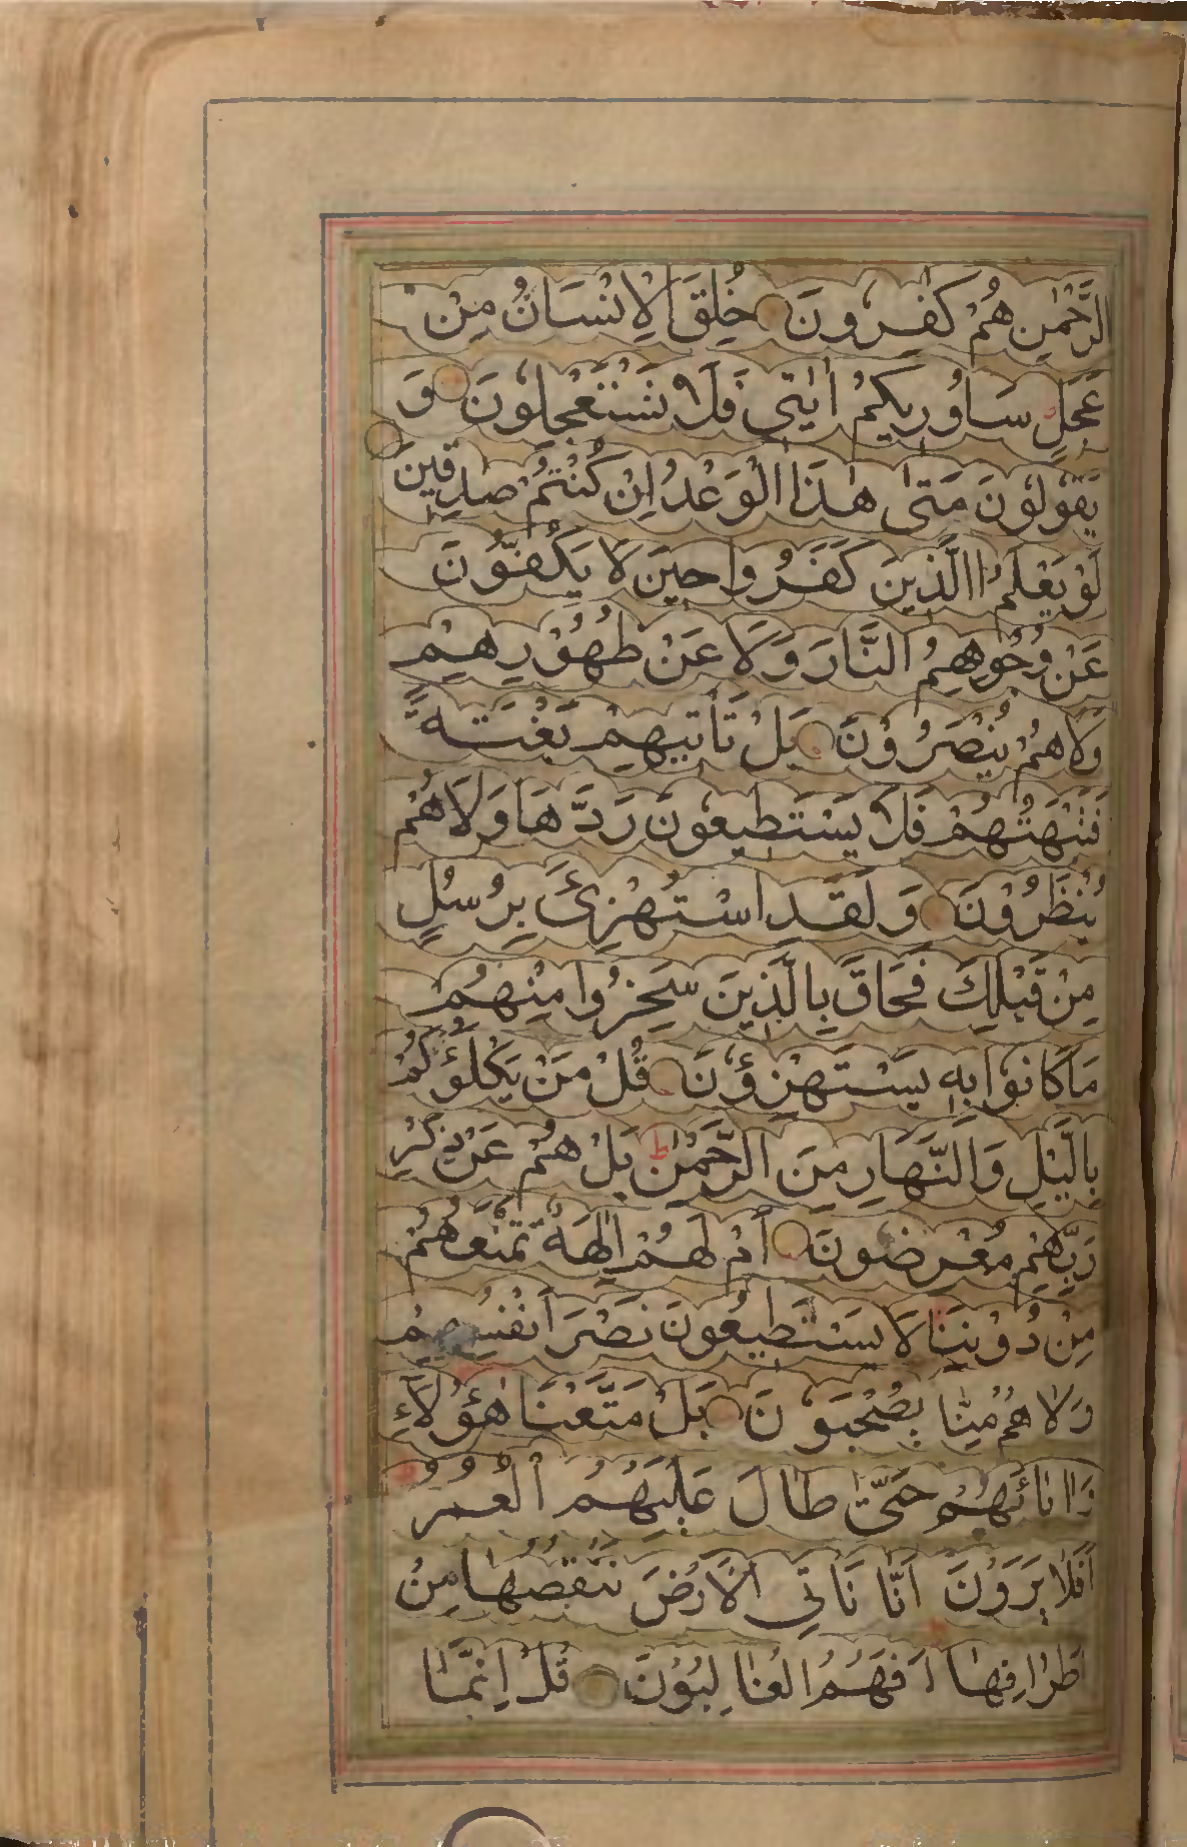 الرَّحْمٰنِ هُمْ كٰفِرُونَ خُلِقَ الْاِنْسَانُ مِنْ
عَجَلٍ سَاُورِيكُمْ اٰيٰتِى فَلَا تَسْتَعْجِلُونَ وَ
يَقُولُونَ مَتىٰ هٰذَا الْوَعْدُ اِنْ كُنْتُمْ صٰدِقِينَ
لَوْ يَعْلَمُ الَّذِينَ كَفَرُوا حِينَ لَا يَكُفُّونَ
عَنْ وُجُوهِهِمُ النَّارَ وَلَا عَنْ ظُهُوْرِهِمْ
وَلَا هُمْ يُنْصَرُوْنَ بَلْ تَأْتِيهِمْ بَغْتَةً
فَتَبْهَتُهُمْ فَلَا يَسْتَطِيعُونَ رَدَّهَا وَلَا هُمْ
يُنْظَرُوْنَ وَلَقَدِ اسْتُهْزِئَ بِرُسُلٍ
مِنْ قَبْلِكَ فَحَاقَ بِالَّذِينَ سَخِرُوا مِنْهُمْ
مَا كَانُوا بِهٖ يَسْتَهْزِؤُنَ قُلْ مَنْ يَكْلَؤُكُمْ
بِالَّيْلِ وَالنَّهَارِ مِنَ الرَّحْمٰنِ ط بَلْ هُمْ عَنْ ذِكْرِ
رَبِّهِمْ مُعْرِضُونَ أَمْ لَهُمْ اٰلِهَةٌ تَمْنَعُهُمْ
مِنْ دُوْنِنَا لَا يَسْتَطِيعُونَ نَصْرَ اَنْفُسِهِمْ
وَلَا هُمْ مِنَّا يُصْحَبُونَ بَلْ مَتَّعْنَا هٰؤُلَاۤءِ
وَاٰبَائَهُمْ حَتّٰى طَالَ عَلَيْهِمُ الْعُمُرُ
اَفَلَا يَرَوْنَ اَنَّا نَاْتِى الْاَرْضَ نَنْقُصُهَا مِنْ
اَطْرَافِهَا اَفَهُمُ الْغَالِبُوْنَ قُلْ اِنَّمَا